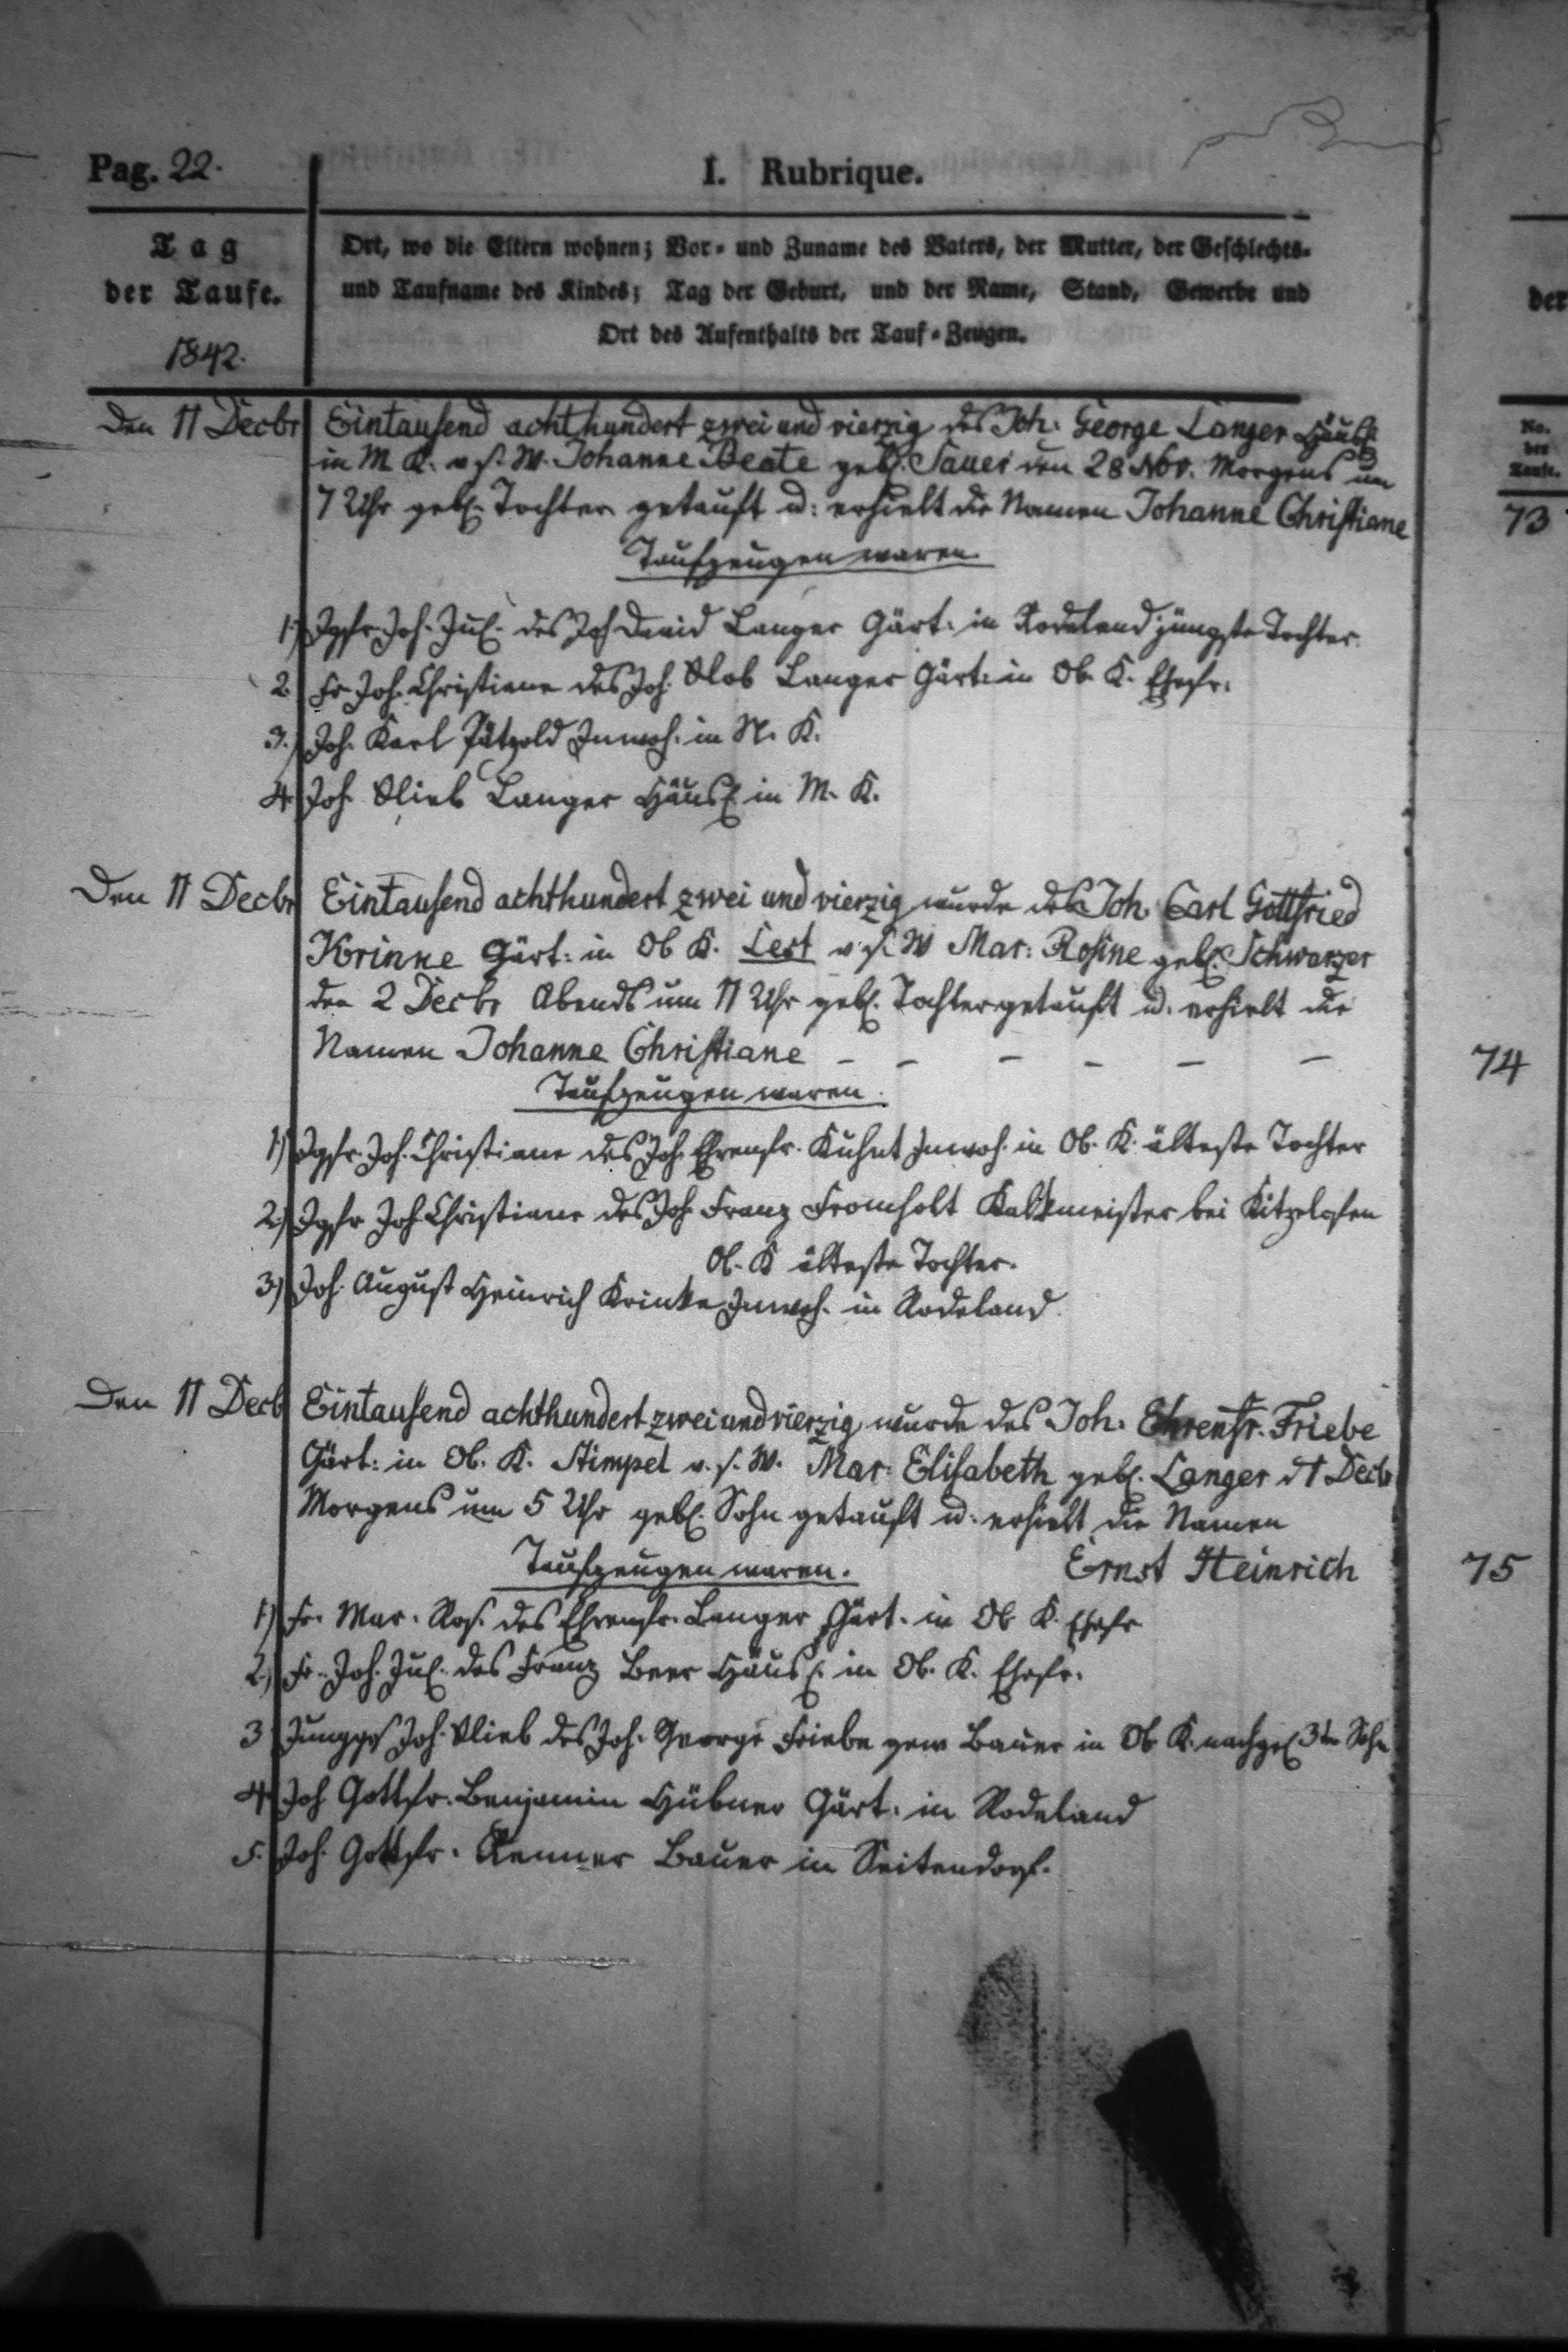 Pag. 22.
I. Rubrique.
Tag
der Taufe.
1842.
Ort, wo die Eltern wohnen; Vor- und Zuname des Vaters, der Mutter, der Geschlechts-
und Taufname des Kindes; Tag der Geburt, und der Name, Stand, Gewerbe und
Ort des Aufenthalts der Tauf-Zeugen.
Den 11 Decbr Eintausend achthundert zwei und vierzig des Joh. George Langer Häusl.
in M K. v. s. W. Johanne Beate geb. Sauer den 28 Nov. Morgens um
7 Uhr geb. Tochter getauft u: erhielt die Namen Johanne Christiane
Taufzeugen waren.
1.) Jgfr. Joh. Jul. des Joh David Langer Gärt: in Rodeland jüngste Tochter.
2. Fr. Joh. Christiane des Joh. Glob Langer Gärt: in Ob. K. Ehefr.
3.) Joh. Karl Pätzold Inwoh. in N. K.
4. Joh. Glieb Langer Häusl. in M. K.
Den 11 Decbr Eintausend achthundert zwei und vierzig wurde des Joh. Carl Gottfried
Krinke Gärt: in Ob K. v. s. W Mar: Rosine geb. Schwarzer
den 2 Decbr Abends um 11 Uhr geb. Tochter getauft u. erhielt die
Namen Johanne Christiane – – – – – –
Taufzeugen waren.
1.) Jgfr. Joh. Christiane des Joh. Ehrenfr. Kuhnt Inwoh. in Ob. K. älteste Tochter
2.) Jgfr Joh. Christiane des Joh. Franz Fromholt Kalkmeister bei Kitzelofen
Ob. K älteste Tochter.
3.) Joh. August Heinrich Krinke Inwoh. in Rodeland.
Den 11 Decb Eintausend achthundert zwei und vierzig wurde des Joh. Ehrenfr. Friebe
Gärt: in Ob. K. Stimpel v. s. W. Mar. Elisabeth geb. Langer d 1 Decb
Morgens um 5 Uhr geb. Sohn getauft u. erhielt die Namen
Taufzeugen waren. Ernst Heinrich
1.) Fr. Mar. Ros. des Ehrenfr. Langer Gärt. in Ob K. Ehefr
2.) Fr. Joh. Jul. des Franz Beer Häusl. in Ob. K. Ehefr.
3 Junggs Joh. Glieb des Joh. George Friebe gew Bauer in Ob K. nachgel 3te Sohn
4. Joh Gottfr. Benjamin Hübner Gärt. in Rodeland
5. Joh. Gottfr. Renner Bauer in Seitendorf.
der
No.
der
Taufe.
73
74
75